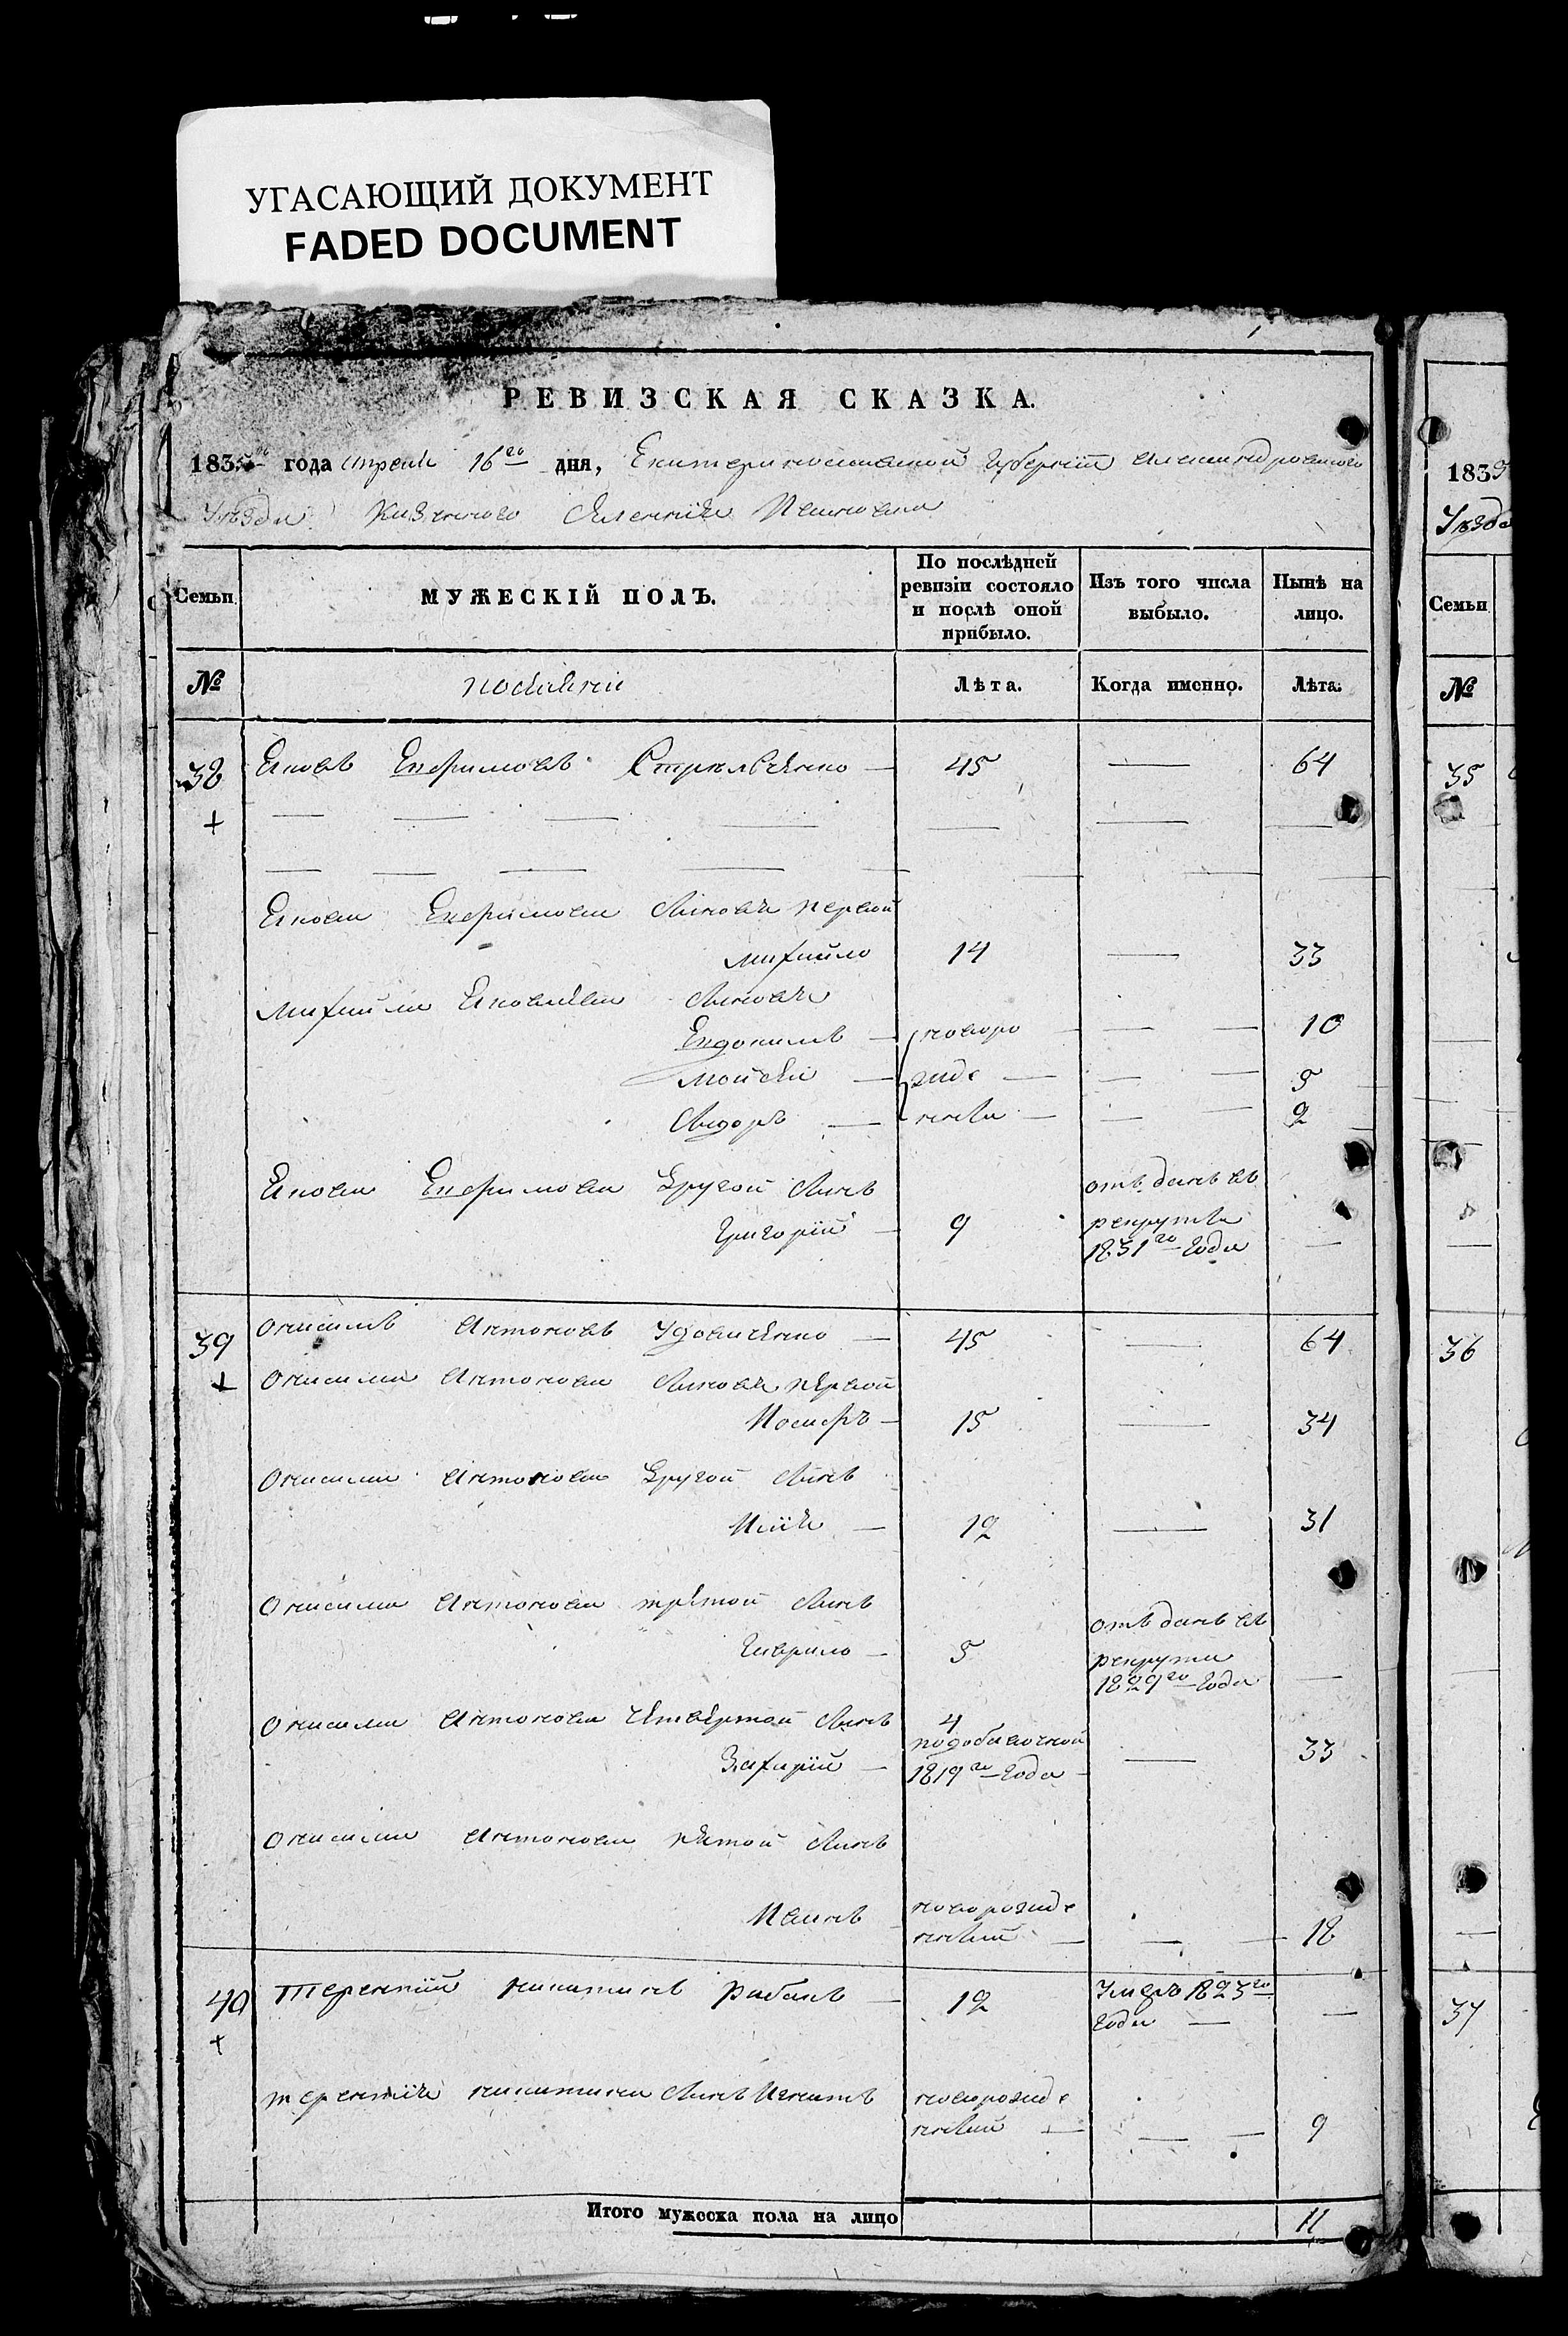 УГАСАЮЩИЙ ДОКУМЕНТ
FADED DOCUMENT
РЕВИЗСКАЯ СКАЗКА.
1835го года апреля 16го дня, Екатеринославской Губернiи Александровского
Уѣзда Казенного Селенiя
Семьи МУЖЕСКIЙ ПОЛЪ. По послѣдней ревизiи состояло и послѣ оной прибыло. Изъ того числа выбыло. Нынѣ на лицо.
№ поселяне Лѣта. Когда именно. Лѣта.
38 Яковъ Ефимовъ 45 — 64
+
Якова Ефимова Сыновя первой
Михайло 14 — 33
Михайла Яковлева Сыновя
Евдокимъ — новоро — — 10
Мойсей — жде — — 5
Сидоръ — нныи — — 2
Якова Ефимова Другой Сынъ отъ данъ въ
Григорiй — 9 рекруты —
1831го Года
39 Онисимъ Антоновъ Удовиченко — 45 — 64
+ Онисима Антонова Сыновя первой
Иосифъ — 15 — 34
Онисима Антонова Другой Сынъ
Илiя — 12 — 31
Онисима Антонова третой Сынъ отъ данъ въ
Гаврило — 5 рекруты —
1829го Года
Онисима Антонова Четвертой Сынъ 4
Захарiй — подобавочной — 33
1819го Года
Онисима Антонова пятой Сынъ
Иванъ новорожде
нный — — — 18
40 Терентiй Никитинъ Рабанъ — 12 Умеръ 1823го —
+ Года —
Терентiя Никитина Сынъ Игнатъ новорожде
нный — — — 9
Итого мужеска пола на лицо 11
1835
Уѣзда
Семьи
№
35
36
37